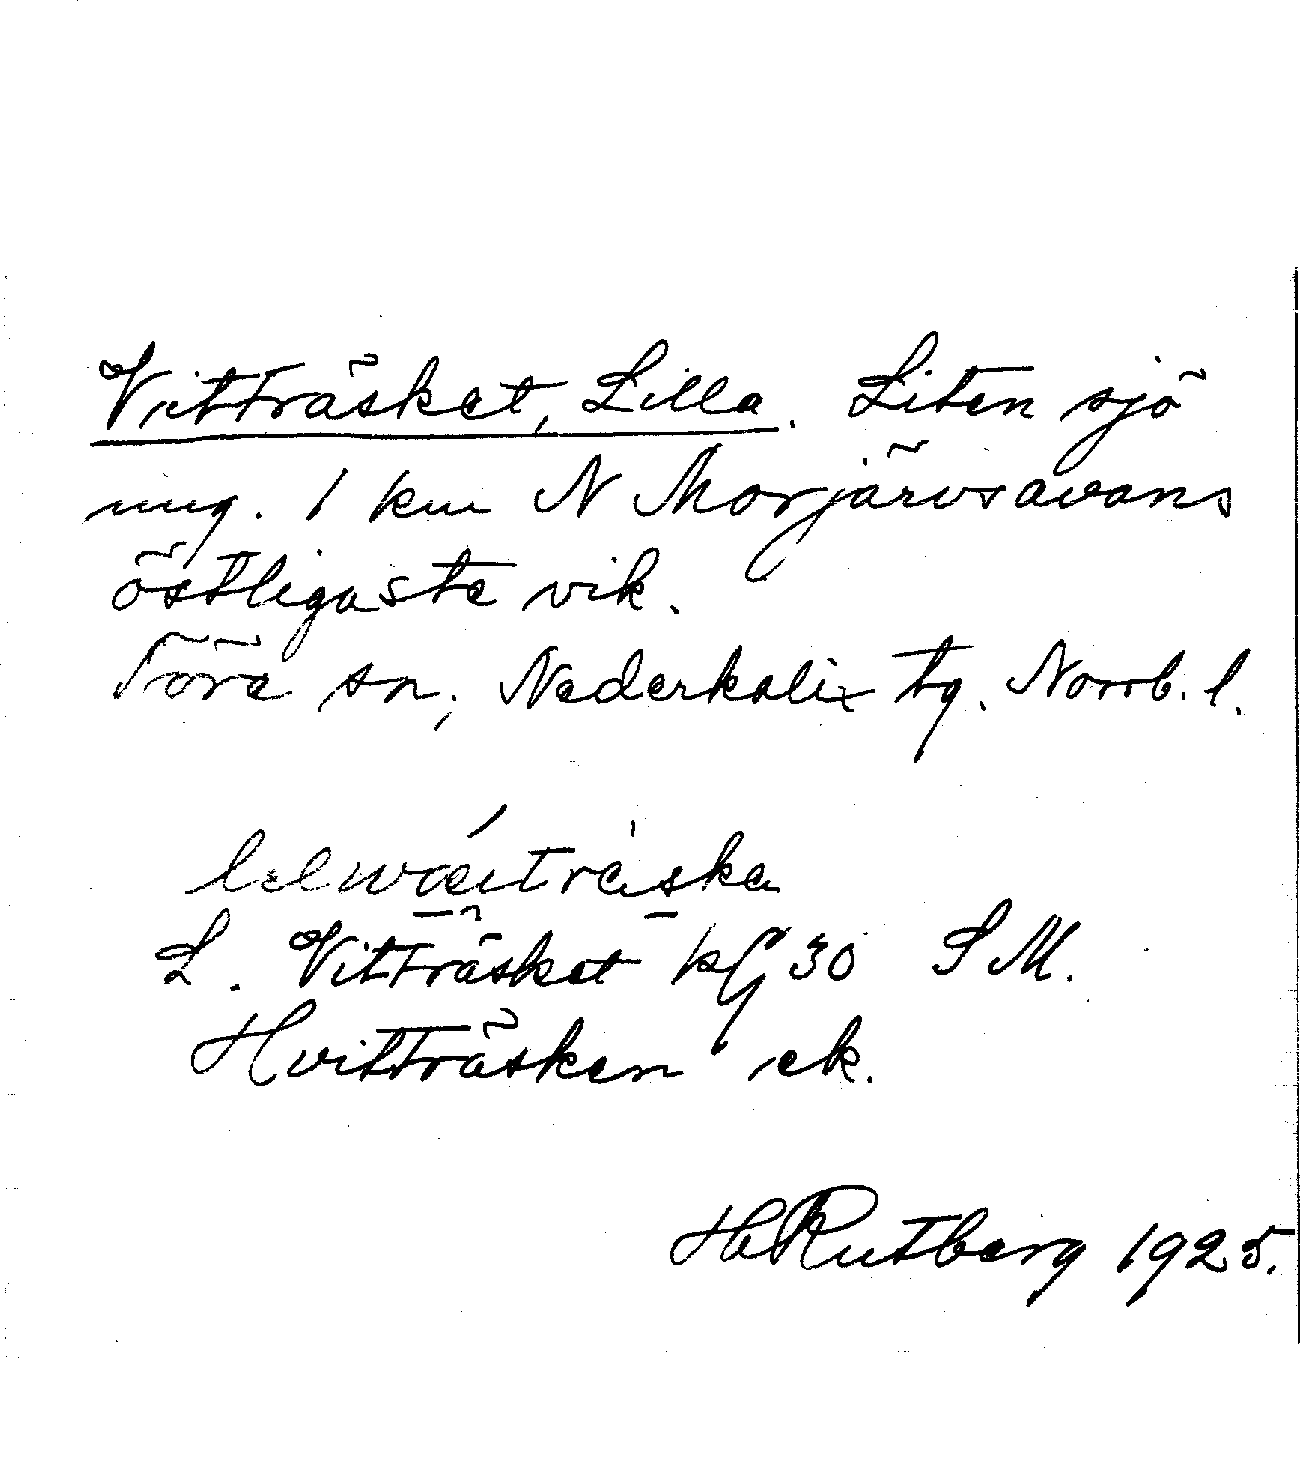 Vitträsket, Lilla. Liten sjö
ung. 1 km N Morjärvsavans
östligaste vik.
Töre sn, Nederkalix tg. Norrb. l.
lɛlwæitrȧska
L. Vitträsket kfg 30 S M.
Hvitträsken ek.
H Rutberg 1925.